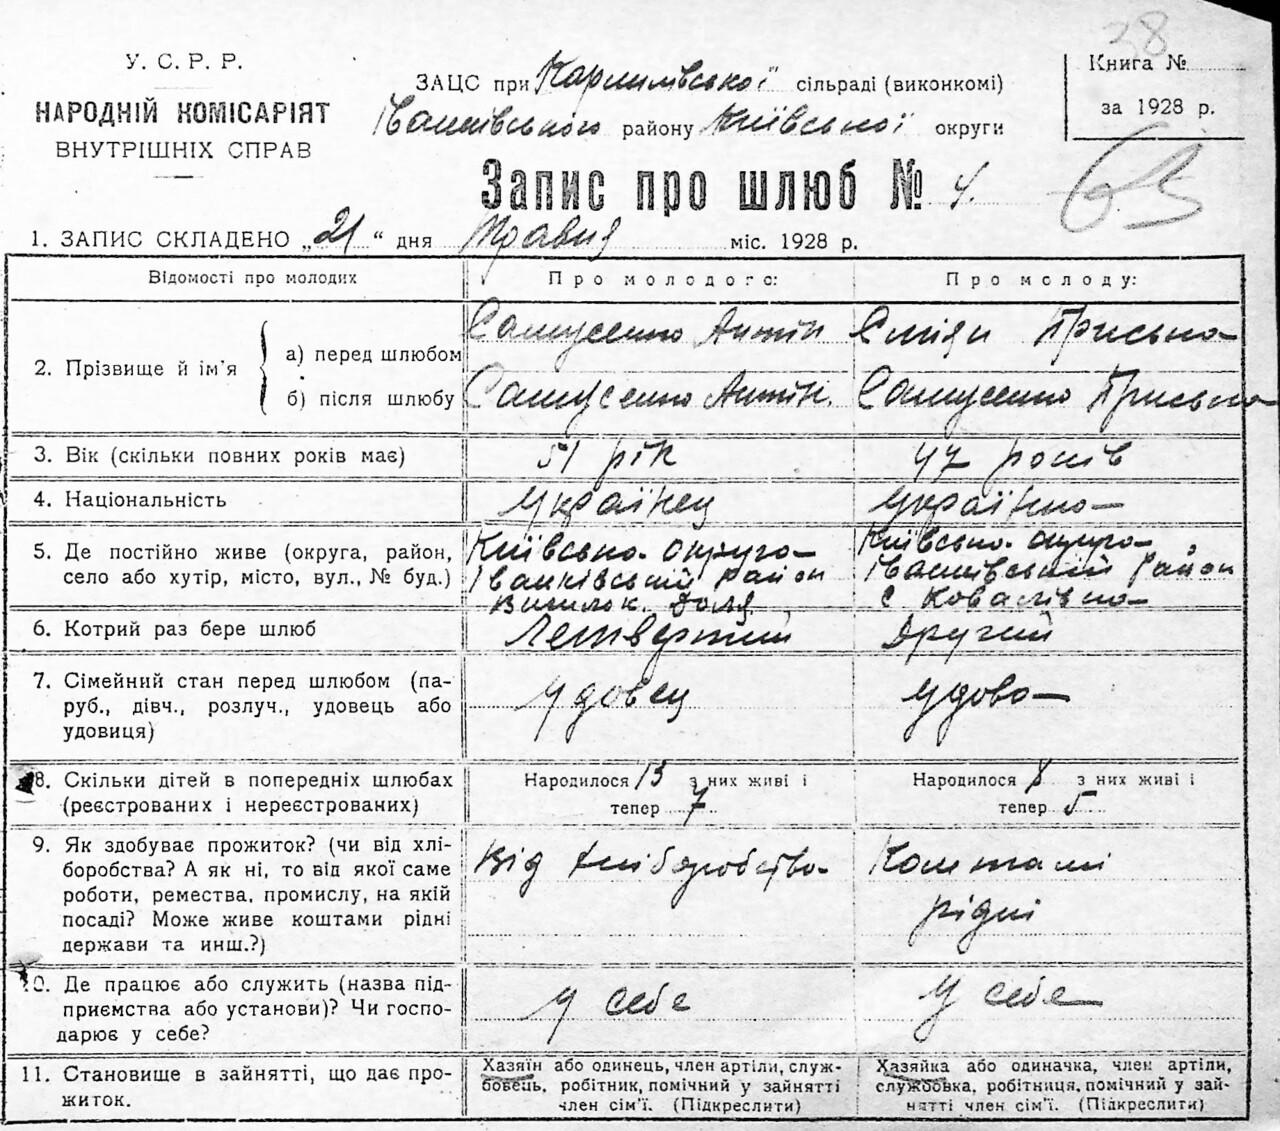 38
У. С. Р. Р.
НАРОДНІЙ КОМІСАРІЯТ
ВНУТРІШНІХ СПРАВ
ЗАЦС при сільраді (виконкомі)
Іванківського району Київської округи
Книга №
за 1928 р.
63
Запис про шлюб № 4.
1. ЗАПИС СКЛАДЕНО „21“ дня Травня міс. 1928 р.
Відомості про молодих
Про молодого:
Про молоду:
2. Прізвище й ім’я
а) перед шлюбом
Самусенко Антін
Приська
б) після шлюбу
Самусенко Антін.
Самусенко Приська
3. Вік (скільки повних років має)
51 рік
47 років
4. Національність
Українец
Українка
5. Де постійно живе (округа, район,
село або хутір, місто, вул., № буд.)
Київська округа
Іванківський район
Київська округа,
Іванківський район
с Ковалівка
6. Котрий раз бере шлюб
Четвертий
Другий
7. Сімейний стан перед шлюбом (па-
руб., дівч., розлуч., удовець або
удовиця)
Удовец
Удова
8. Скільки дітей в попередніх шлюбах
(реєстрованих і нереєстрованих)
Народилося 13 з них живі і
тепер 7
Народилося 8 з них живі і
тепер 5
9. Як здобуває прожиток? (чи від хлі-
боробства? А як ні, то від якої саме
роботи, ремества, промислу, на якій
посаді? Може живе коштами рідні
держави та инш.?)
Від хліборобства
Коштами
рідні
10. Де працює або служить (назва під-
приємства або установи)? Чи госпо-
дарює у себе?
У себе
У себе
11. Становище в зайнятті, що дає про-
житок.
Хазяїн або одинець, член артілі, служ-
бовець, робітник, помічний у зайнятті
член сім’ї. (Підкреслити)
Хазяйка або одиначка, член артіли,
службовка, робітниця, помічний у зай-
нятті член сім’ї. (Підкреслити)